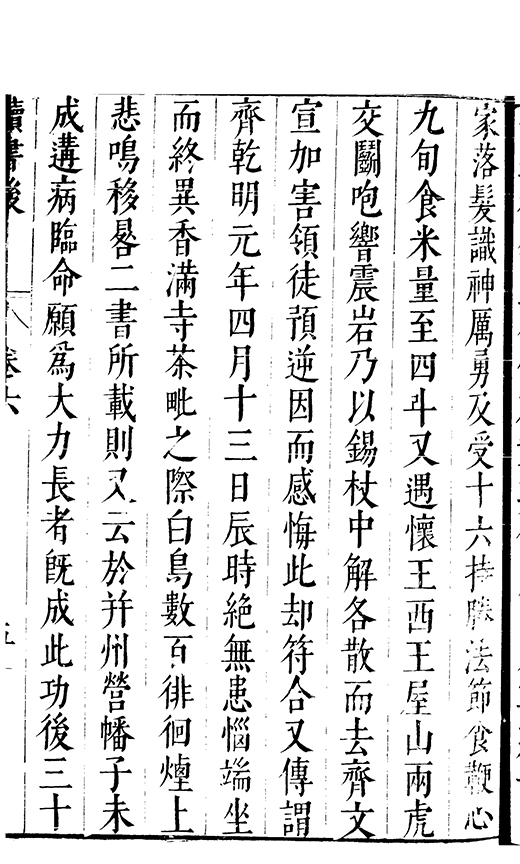 家落髮識神厲勇及受十六持勝法節食鞭心
九旬食米量至四斗又遇懷王西王屋山兩虎
交鬬咆響震岩乃以錫杖中解各散而去齊文
宣加害領徒預逆因而感悔此却符合又傳謂
齊乾明元年四月十三日辰時絕無患惱端坐
而終異香滿寺茶毗之際白鳥數百徘徊煙上
悲鳴移晷二書所載則又云於并州營幡子未
成遘病臨命願爲大力長者旣成此功後三十
讀書後
卷六
五